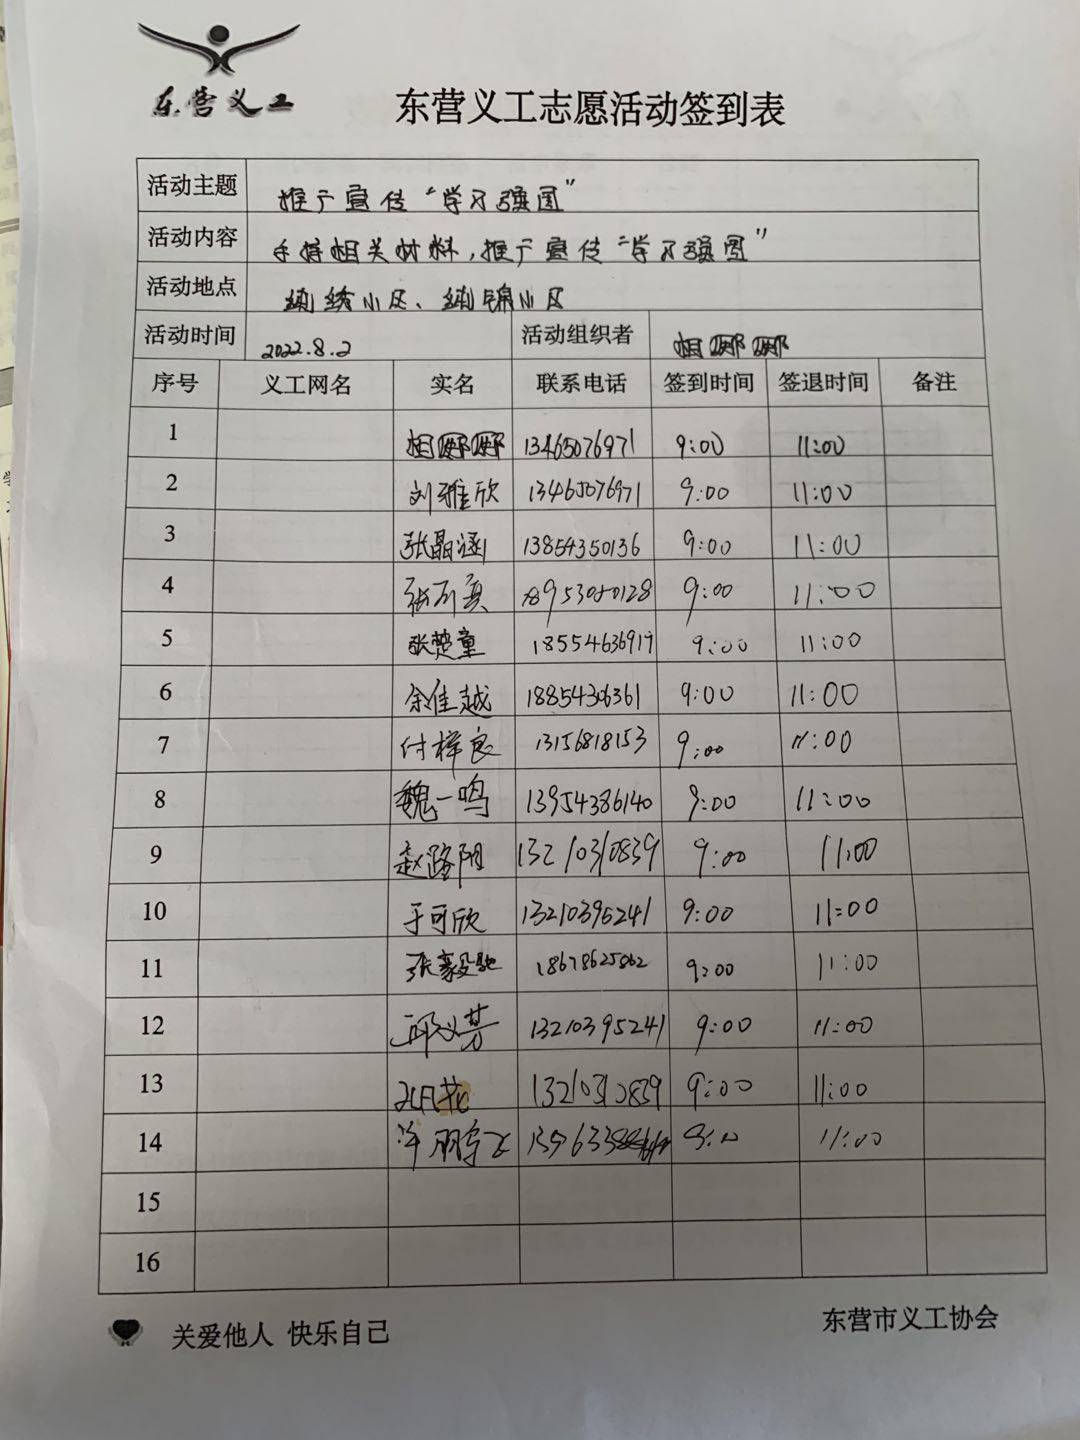 东营义工
东营义工志愿活动签到表
活动主题 推广宣传“学习强国”
活动内容 手持相关材料,推广宣传“学习强国”
活动地点 绣小区、锦小区
活动时间 2022.8.2 活动组织者 相娜娜
序号 义工网名 实名 联系电话 签到时间 签退时间 备注
1 相娜娜 13465076971 9:00 11:00
2 刘雅欣 13465076971 9:00 11:00
3 张晶涵 13854350136 9:00 11:00
4 张 9:00 11:00
5 张楚童 18554636917 9:00 11:00
6 余佳越 18854306361 9:00 11:00
7 付梓良 13156818153 9:00 11:00
8 魏一鸣 13954386140 9:00 11:00
9 赵路阳 13210310839 9:00 11:00
10 于可欣 13210395241 9:00 11:00
11 张豪毅驰 18678625862 9:00 11:00
12 邱义芳 13210395241 9:00 11:00
13 13210310839 9:00 11:00
14 11:00
15
16
关爱他人 快乐自己
东营市义工协会